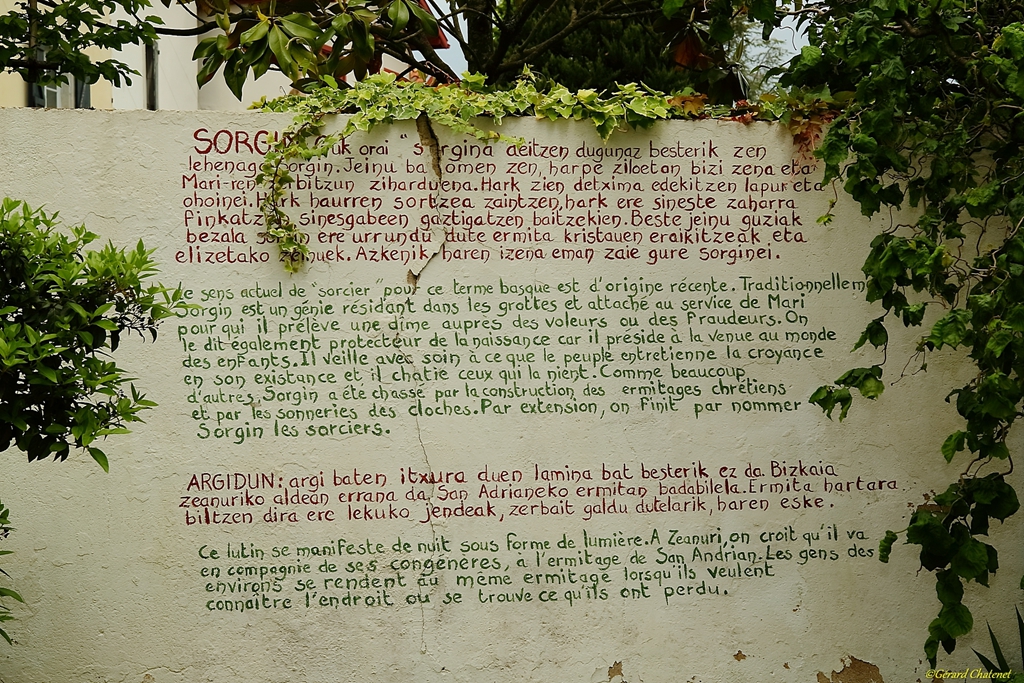 SORGIN guk orai "sorgina deitzen dugunaz besterik zen
lehenago sorgin. Jeinu bat omen zen, harpe ziloetan bizi zena eta
Mari-ren zerbitzun ziharduena. Hark zien detxima edekitzen lapur eta
ohoinei. Hark haurren sortzea zaintzen, hark ere sineste zaharra
finkatzen, sinesgabeen gaztigatzen baitzekien. Beste jeinu guziak
bezala sorgin ere urrundu dute ermita kristauen eraikitzeak, eta
elizetako zeinuek. Azkenik haren izena eman zaie gure sorginei.
Le sens actuel de "sorcier" pour ce terme basque est d'origine récente. Traditionnellem
Sorgin est un génie résidant dans les grottes et attaché au service de Mari
pour qui il prélève une dîme auprès des voleurs ou des fraudeurs. On
le dit également protecteur de la naissance car il préside à la venue au monde
des enfants. Il veille avec soin à ce que le peuple entretienne la croyance
en son existance et il chatie ceux qui la nient. Comme beaucoup
d'autres, Sorgin a été chassé par la construction des ermitages chrétiens
et par les sonneries des cloches. Par extension, on finit par nommer
Sorgin les sorciers.
ARGIDUN: argi baten itxura duen lamina bat besterik ez da. Bizkaia
zeanuriko aldean errana da, San Adrianeko ermitan badabilela. Ermita hartara
biltzen dira ere lekuko jendeak, zerbait galdu dutelarik, haren eske.
Ce lutin se manifeste de nuit sous forme de lumière. A Zeanuri, on croit qu'il va
en compagnie de ses congénères, a l'ermitage de San Andrian. Les gens des
environs se rendent au même ermitage lorsqu'ils veulent
connaître l'endroit où se trouve ce qu'ils ont perdu.
©Gérard Chatenet